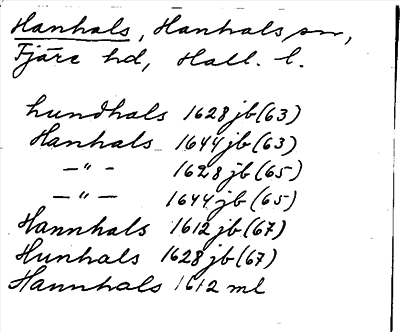 Hanhals, Hanhals sn,
Fjäre hd, Hall. l.
hundhals 1628 jb (63)
Hanhals 1644 jb (63)
— " — 1628 jb (65)
— " — 1644 jb (65)
Hannhals 1612 jb (67)
Hunhals 1628 jb (67)
Hannhals 1612 ml